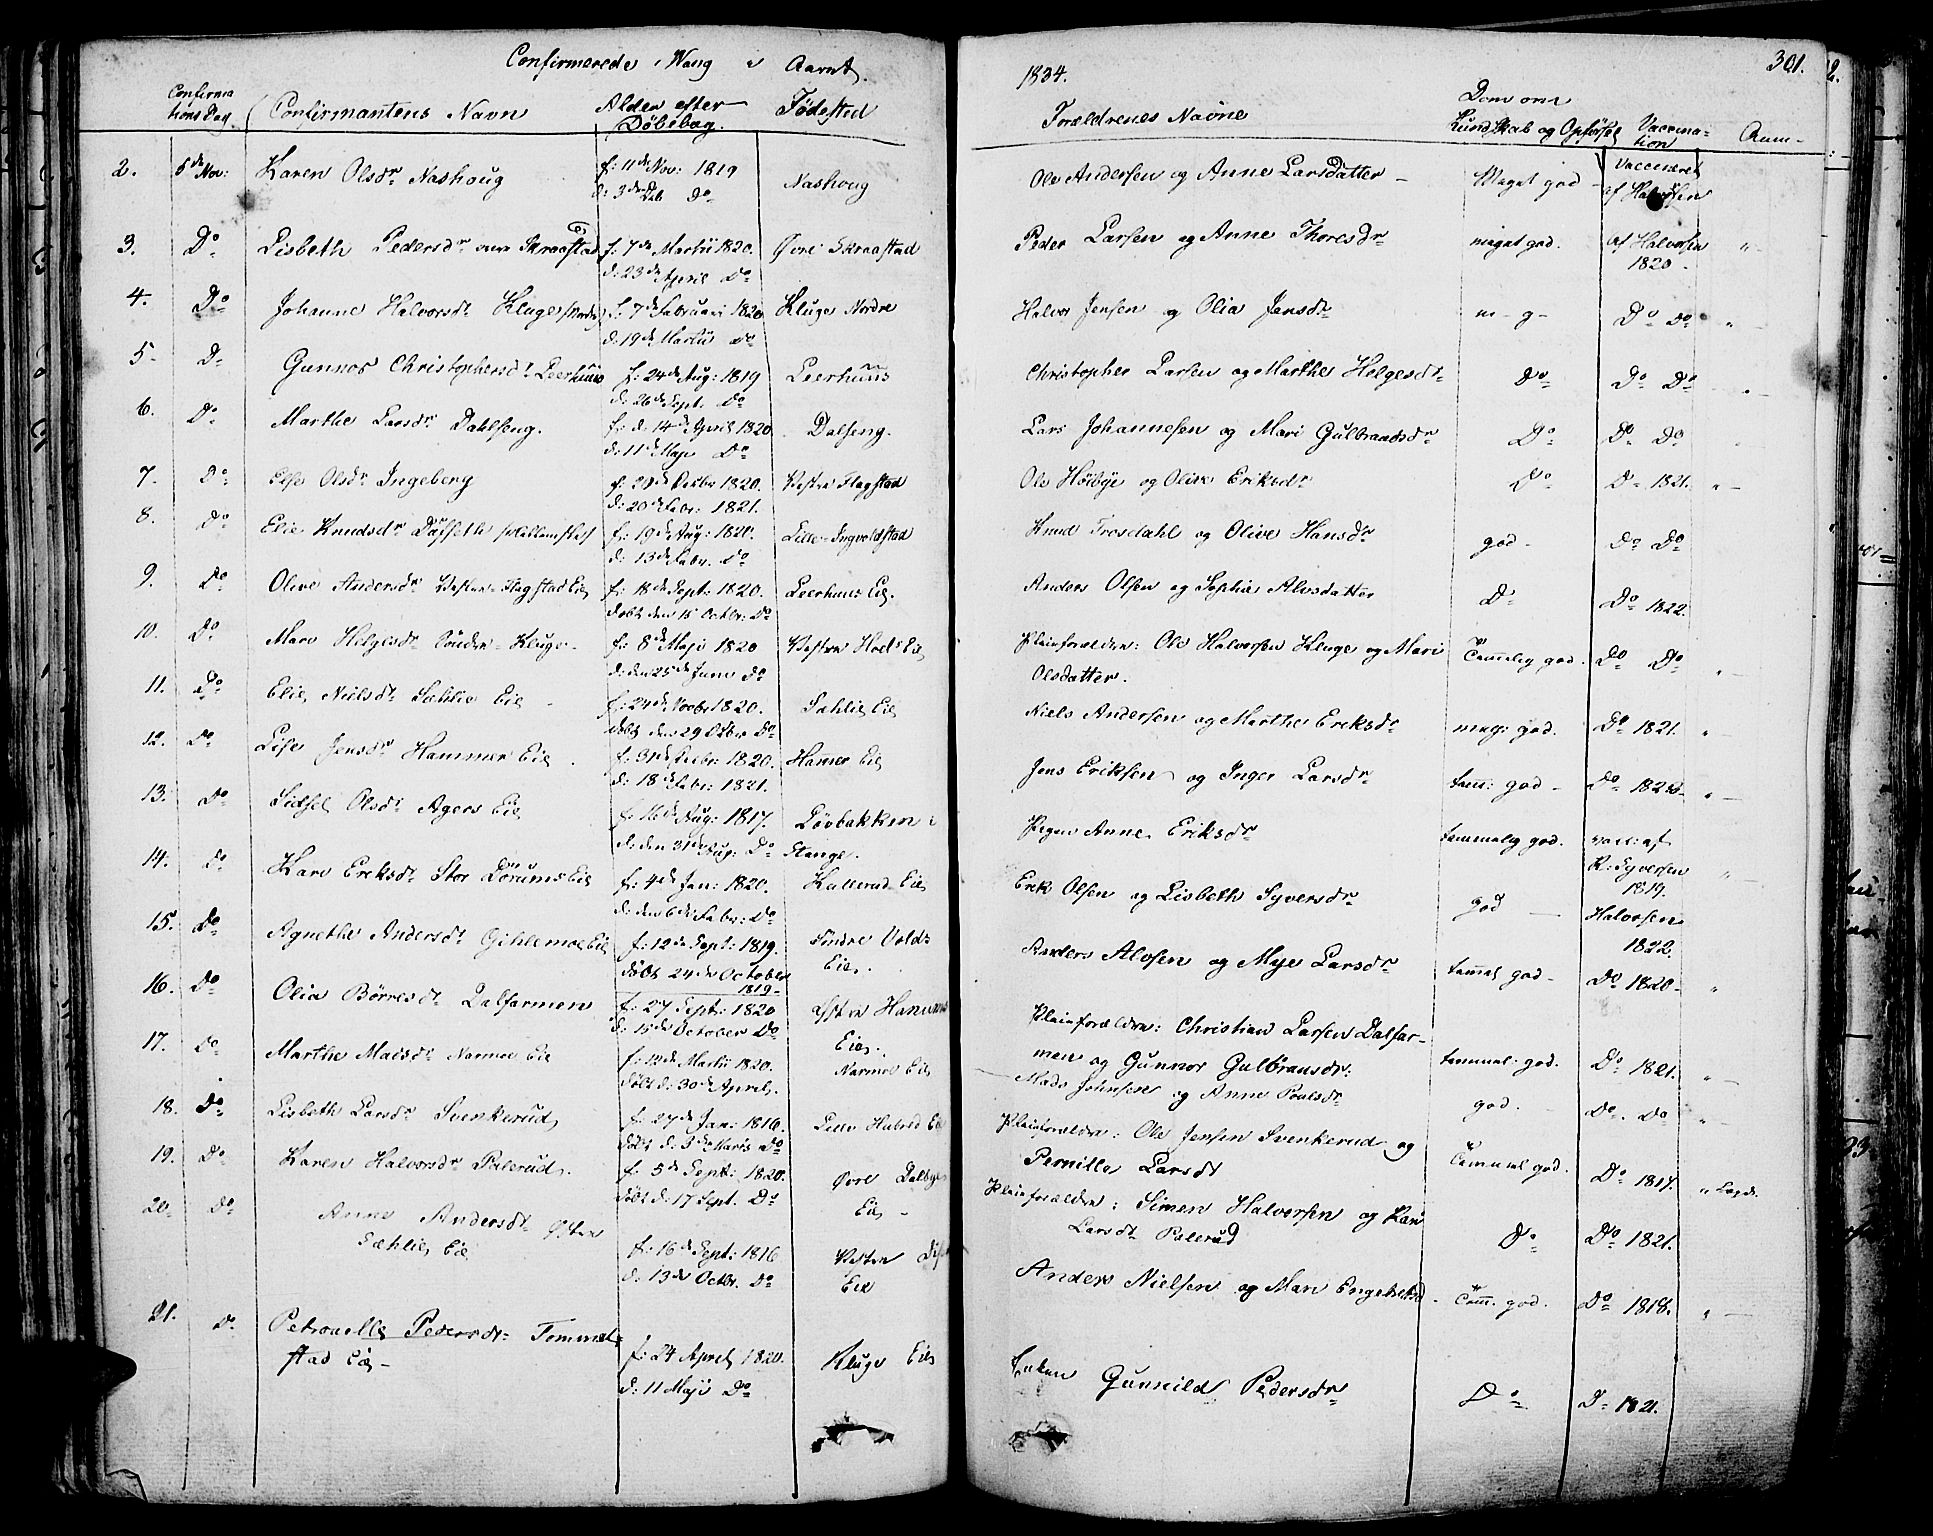 Confirmerede i Wang i Aaret
1834.
301.
Confirma
tions Dag.
Confirmantens Navn
Alder efter
Døbebog.
Fødested
Forældrenes Navne
Dom om
Kundskab og Opførsel
Vaccina-
tion
Anm-
2. 5de Nov: Karen Olsdr Nashoug f: 11de Nov: 1819 Nashoug Ole Andersen og Anne Larsdatter - Meget god - Vaccineret
d: 3die Dcb Do af Halvorsen
3. Do Lisbeth Pedersdr Skraastad f: 7de Martii 1820. Øvre Skraastad Peder Larsen og Anne Thoresdr meget god. af Halvorsen
d: 23de April Do 1820.
4. Do Johanne Halvorsdr Kluge Nordre f. 7de Februari 1820 Kluge Nordre Halvor Jensen og Olia Jensdr m-g- Do Do
d: 19de Martii Do
5. Do Gunnor Christophersdr Leerhuus f. 24de Aug: 1819 Leerhuus Christopher Larsen og Marthe Helgesdr Do Do Do
d: 26de Sept. Do
6. Do Marthe Larsdr Dahlseng. f: d: 14de April 1820 Dalseng. Lars Johannesen og Mari Gulbrandsdr Do Do Do
d: 11de Maji Do
7. Do Else Olsdr Ingeberg f. 29de Decbr 1820. Vestre Flagstad Ole Høibye og Olive Eriksdr Do Do 1821.
d: 20de Febr: 1821.
8. Do Elie Knudsdr f: 19de Aug: 1820. Lille-Ingvoldstad Knud Frosdahl og Olive Hansdr god. Do Do
d: 13de Febr. Do
9. Do Olive Andersdr Vestre-Flagstad Eie f: 18de Sept: 1820. Leerhuus Eie. Anders Olsen og Sophie Alvsdatter Do Do 1822.
døbt den 15 Octbr: Do
10. Do Mari Helgesdr Søndre-Kluge- f: 8de Maji 1820 Vestre Hoel Eie Pleieforældre: Ole Halvorsen Kluge og Mari Temmelig god. Do Do
d: den 25de Juni Do Olsdatter.
11. Do Elie Nielsdr Sæhlie Eie f: 24de Novbr 1820. Sahlie Eie Niels Andersen og Marthe Eriksdr meg: god. Do 1821.
døbt den 29 Dcbr Do
12. Do Lise Jensdr Hammer Eie f: 31de Decbr: 1820. Hammer Eie Jens Eriksen og Inger Larsdr tem: god - Do
d: 18de Febr: 1821.
13. Do Sidsel Olsdr Agers Eie f: 16de Aug: 1817. Løvbakken i Pigen Anne Eriksdr temmelig god. vacc: af
d: den 31de Aug: Do Stange. K: Syversen
1819.
14. Do Kari Eriksdr Stor Lørums Eie f: 4de Jan: 1820. Kullerud-Eie Erik Olsen og Lisbeth Syversdr god - Halvorsen
d: den 6de Febr: Do 1822.
15. Do Agnethe Andersdr Gihlemoe Eie f: 12de Sept: 1819. Søndre Volds Anders Alvsen og Mye Larsdr temmel god - Do 1820-
døbt 24de October Eie.
1819-
16. Do Olia Børresdr Dalfarmen f: 27 Septr: 1820 Østre Pleieforældre: Christian Larsen Dalfar-
d: 15de October Do Eie. men og Gunnor Gulbransdr: temmel: god. Do 1821.
17. Do Marthe Madsdr Narmoe Eie f. 12de Martii 1820. Narmoe Eie Mads Johnsen og Anne Paulsdr god. Do. Do
døbt d: 30de April.
18. Do Lisbeth Larsdr Svenkerud f: 27de Jan: 1816. Lille Pleieforældre: Ole Jensen Svenkerud og Temmel god. Do 1817.
døbt d: 3de Marts Do Pernille Larsdr
19. Do Karen Halvorsdr Palerud. f: 5de Septr: 1820. Øvre Dalbye Pleieforældre: Simen Halvorsen og Kari Do Do 1821.
døbt d: 17 Sept. Do Eie - Larsdr Palerud
20. Do Anne Andersdr Østre f: 16de Sept: 1816 Vestre Anders Nielsen og Mari Engebretsd. Tem. god. Do 1818.
Sæhlie Eie d: 13de Octbr. Do Eie
21. Do Petronelle Pedersdr Tommel- f: 24 April 1820. Kluge Eie Enken Gunnild Pedersdr Do Do 1821.
stad Eie - d: 11 Maji Do